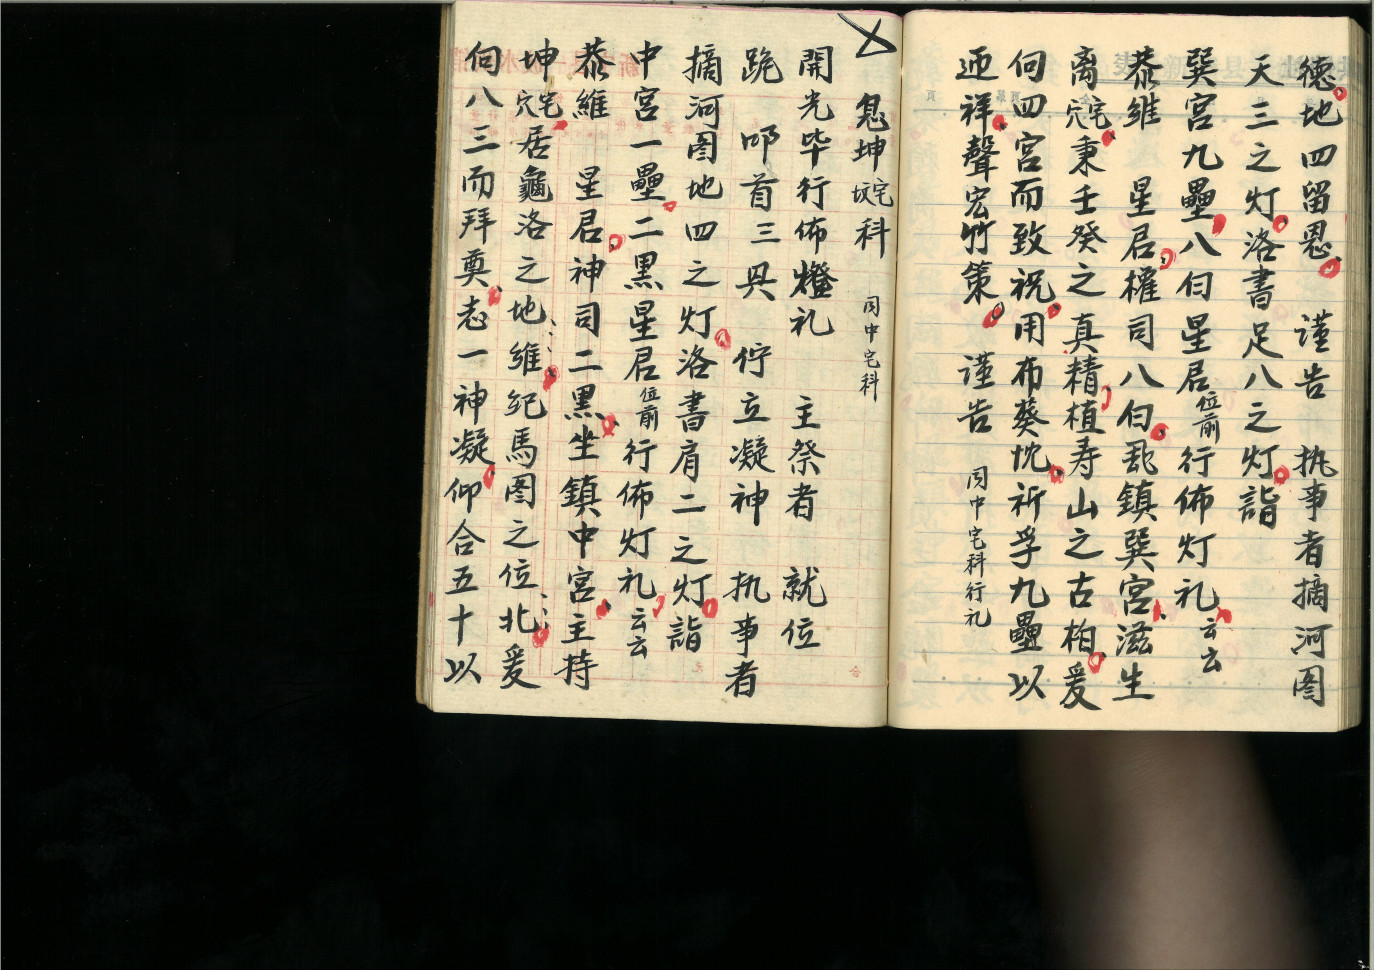 德地四留恩 謹告 执事者摘河图
天三之灯洛書足八之灯詣
巽宫九壘八白星君位前行佈灯礼云云
恭维 星君權司八白 鎮巽宫滋生
离宅穴秉壬癸之真精植寿山之古柏爰
向四宫而致祝用布葵忱祈孚九壘以
迎祥聲宏竹策 謹告 同中宅科行礼
息坤宅坟科 同中宅科
開光毕行佈燈礼 主祭者 就位
跪 叩首三 兴 佇立凝神 执事者
摘河图地四之灯洛書肩二之灯詣
中宫一壘二黑星君位前行佈灯礼云云
恭維 星君神司二黑坐鎮中宫主持
坤宅穴居龜洛之地維纪馬图之位北爰
向八三而拜奠志一神凝仰合五十以